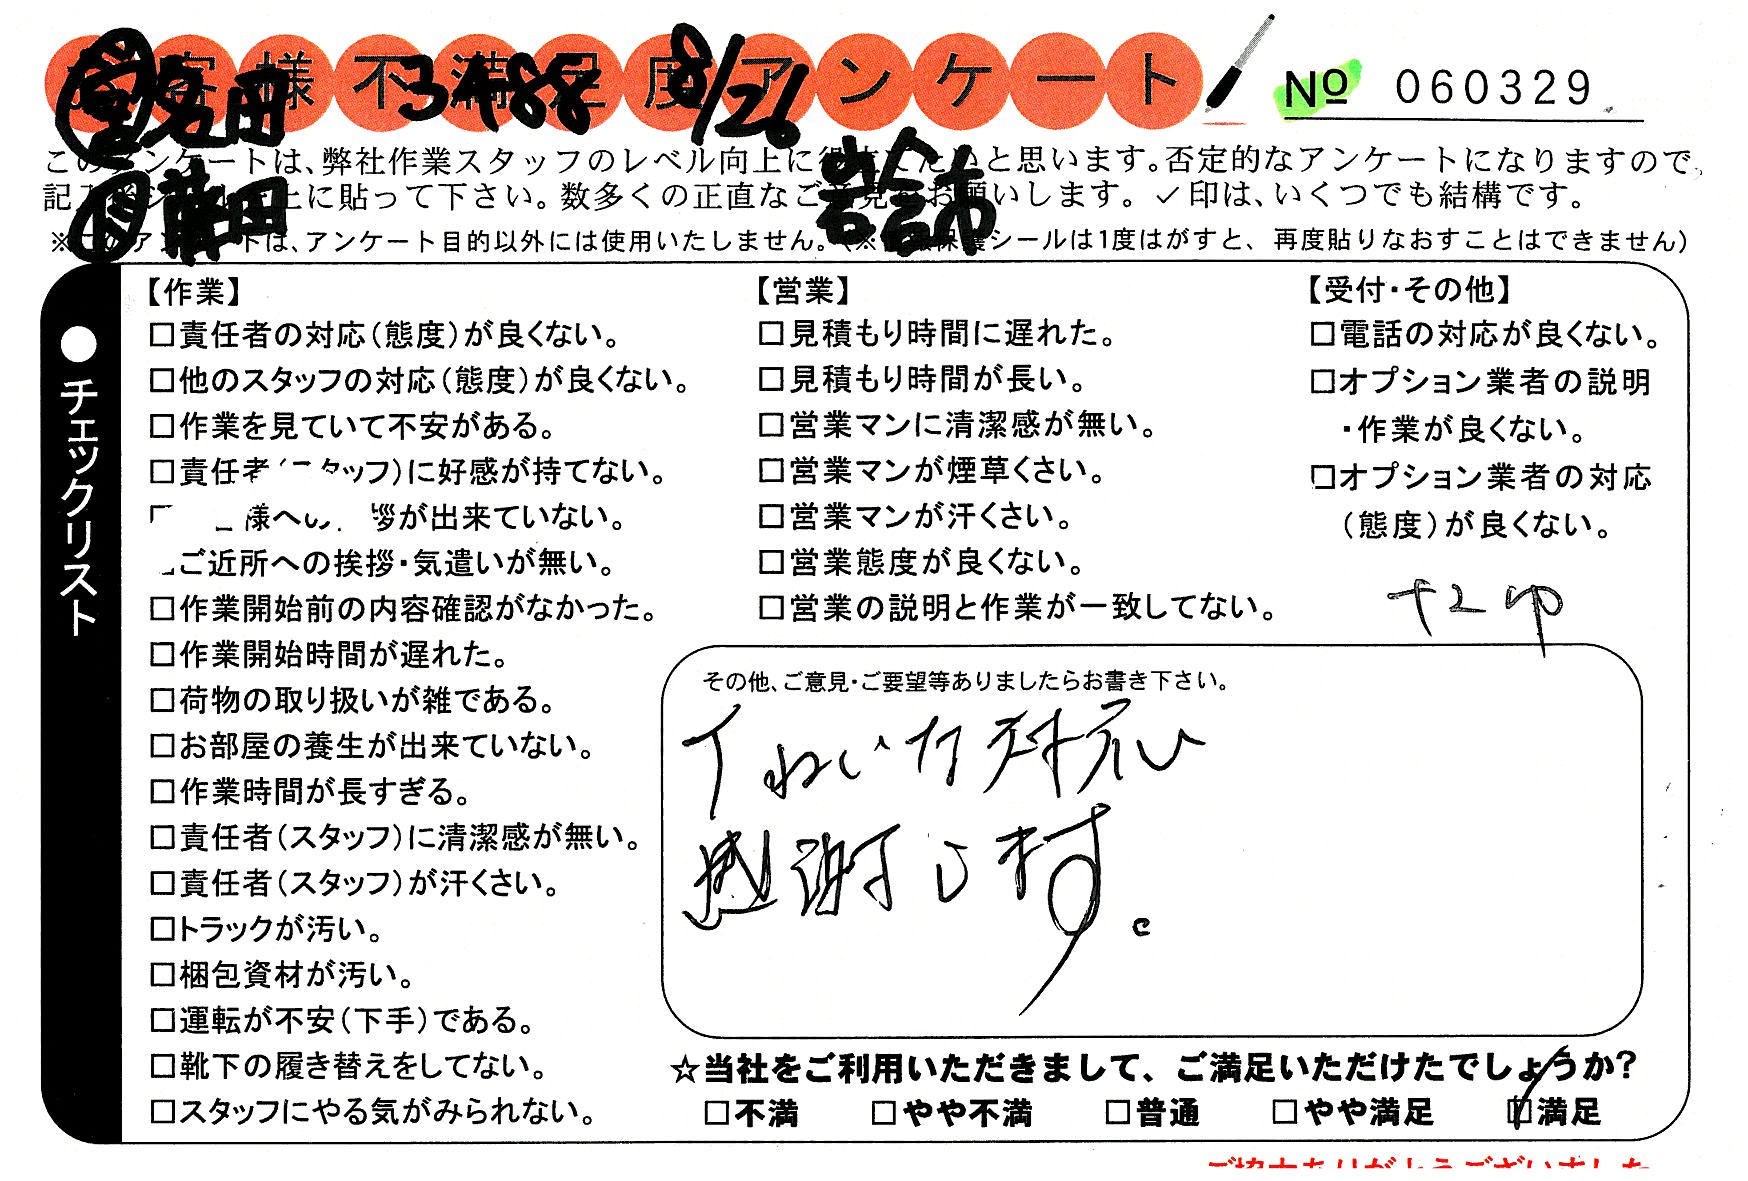 客様不満足度アンケート
8/26
№ 060329
このアンケートは、弊社作業スタッフのレベル向上に役立てたいと思います。否定的なアンケートになりますので、
に貼って下さい。数多くの正直なご意見をお願いします。✓印は、いくつでも結構です。
※このアンケートは、アンケート目的以外には使用いたしません。(※保護シールは1度はがすと、再度貼りなおすことはできません)
●チェックリスト
【作業】
□責任者の対応(態度)が良くない。
□他のスタッフの対応(態度)が良くない。
□作業を見ていて不安がある。
□責任者(スタッフ)に好感が持てない。
様への 拶が出来ていない。
ご近所への挨拶・気遣いが無い。
□作業開始前の内容確認がなかった。
□作業開始時間が遅れた。
□荷物の取り扱いが雑である。
□お部屋の養生が出来ていない。
□作業時間が長すぎる。
□責任者(スタッフ)に清潔感が無い。
□責任者(スタッフ)が汗くさい。
□トラックが汚い。
□梱包資材が汚い。
□運転が不安(下手)である。
□靴下の履き替えをしてない。
□スタッフにやる気がみられない。
【営業】
□見積もり時間に遅れた。
□見積もり時間が長い。
□営業マンに清潔感が無い。
□営業マンが煙草くさい。
□営業マンが汗くさい。
□営業態度が良くない。
□営業の説明と作業が一致してない。
【受付・その他】
□電話の対応が良くない。
□オプション業者の説明
・作業が良くない。
□オプション業者の対応
(態度)が良くない。
その他、ご意見・ご要望等ありましたらお書き下さい。
ていねいな対応
感謝します。
☆当社をご利用いただきまして、ご満足いただけたでしょうか?
□不満 □やや不満 □普通 □やや満足 ☑満足
ご協力ありがとうございました